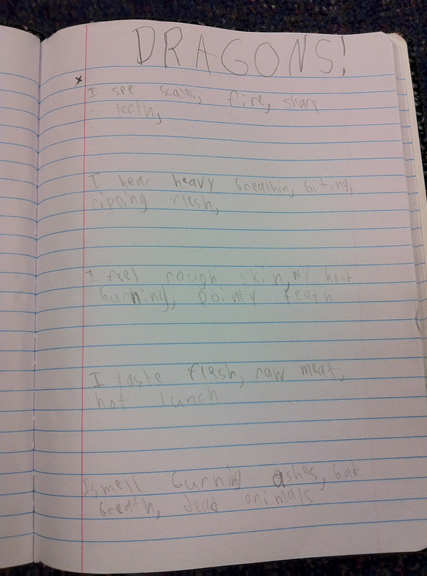 DRAGONS!
x
I see scails, fire, sharp
teeth,
I hear heavy breathin, biting,
ripping flesh,
I feel rough skin, my
burning, pointy teath
I taste flesh, raw meat,
hot lunch
I smell burning ashes, bad
breath, dead animals